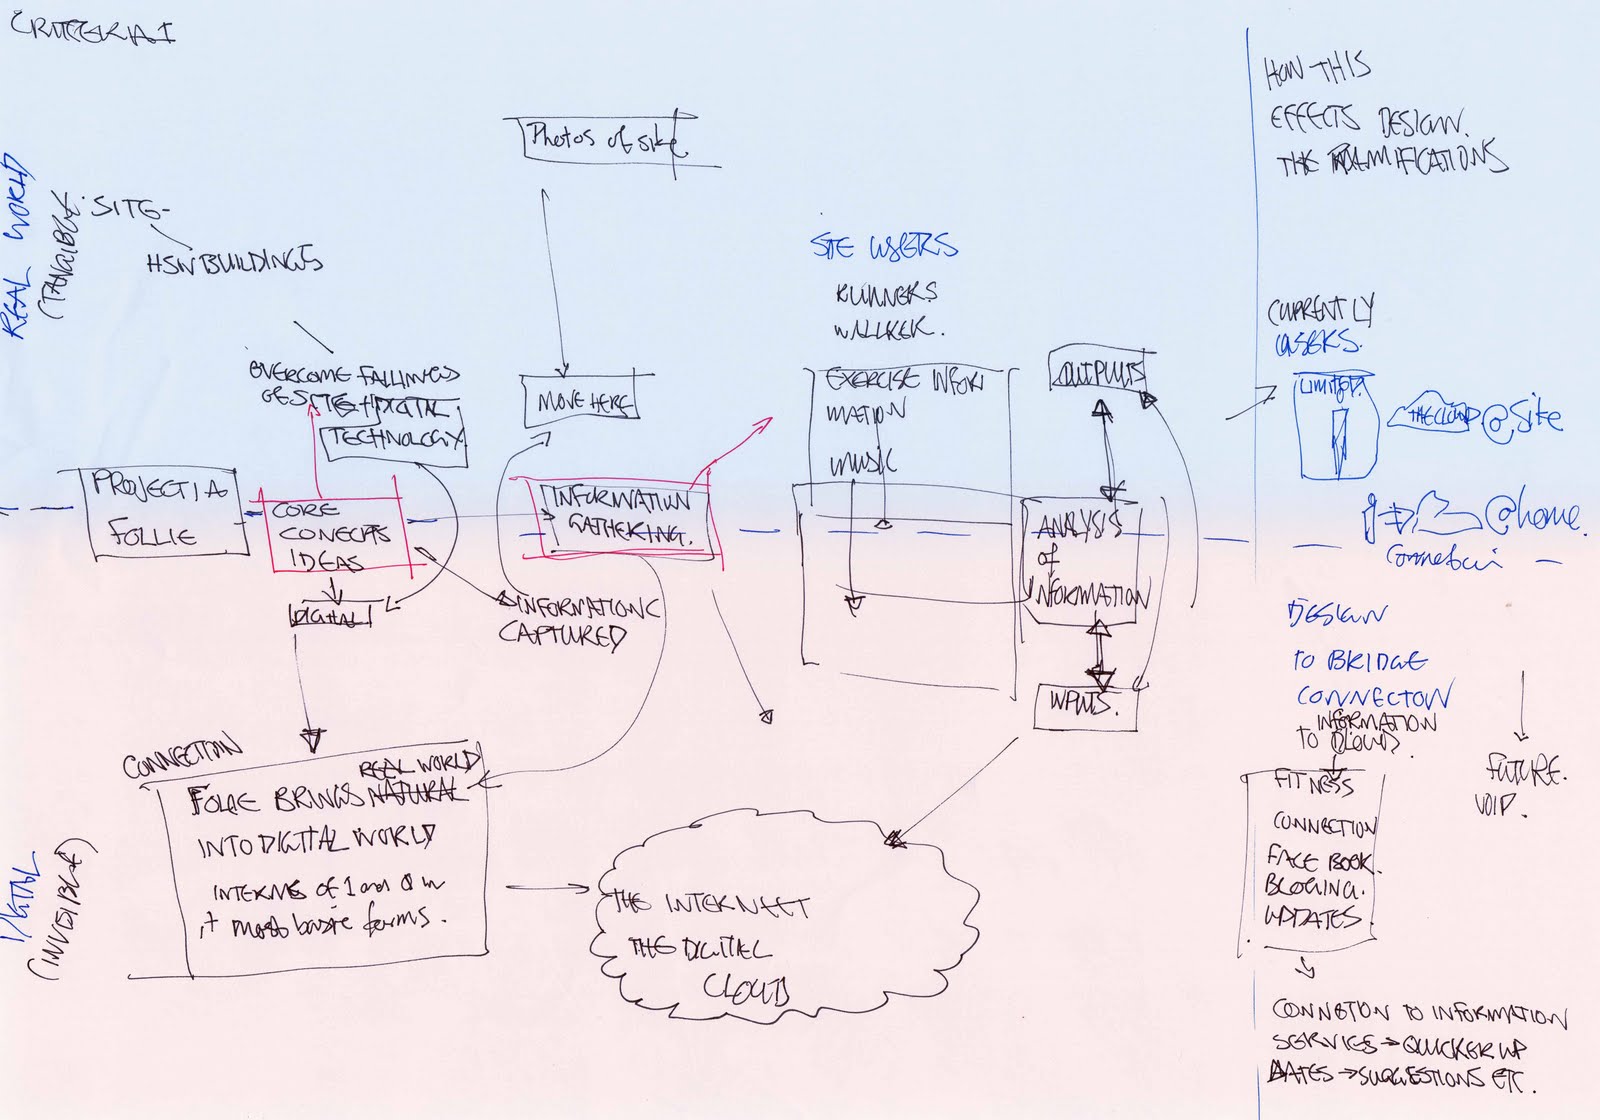 CRITERIA 1
REAL WORLD
(TANGIBLE
SITE-
BUILDINGS
OVERCOME FALLINGS
SITE + DIGITAL
TECHNOLOGY
PROJECT 1A
FOLLIE
CORE
CONECPTS
IDEAS
DIGITAL
Photos of site
MOVE HERE
INFORMATION
GATHERING.
INFORMATION
CAPTURED
SITE USERS
RUNNERS
WALKER.
EXERCISE INFOR
MATION
MUSIC
OUTPUTS
ANALYSIS
of
INFORMATION
INPUTS.
CONNECTION
REAL WORLD
FOLLIE BRINGS NATURAL
INTO DIGITAL WORLD
INTERMS OF 1 and 0 in
it most basic forms.
DIGITAL
(INVISIBLE)
THE INTERNEET
THE DIGITAL
CLOUD
HOW THIS
EFFECTS DESIGN.
THE RAMIFICATIONS
CURRENTLY
USERS.
LIMITED.
THE CLOUD @Site
@home.
DESIGN
TO BRIDGE
CONNECTON
INFORMATION
TO CLOUD.
FITNESS
CONNECTION
FACE BOOK.
BLOGING.
UPDATES.
FUTURE.
VOID.
CONNETION TO INFORMATION
SERVICES → QUICKER UP
DATES → SUGGESTIONS ETC.